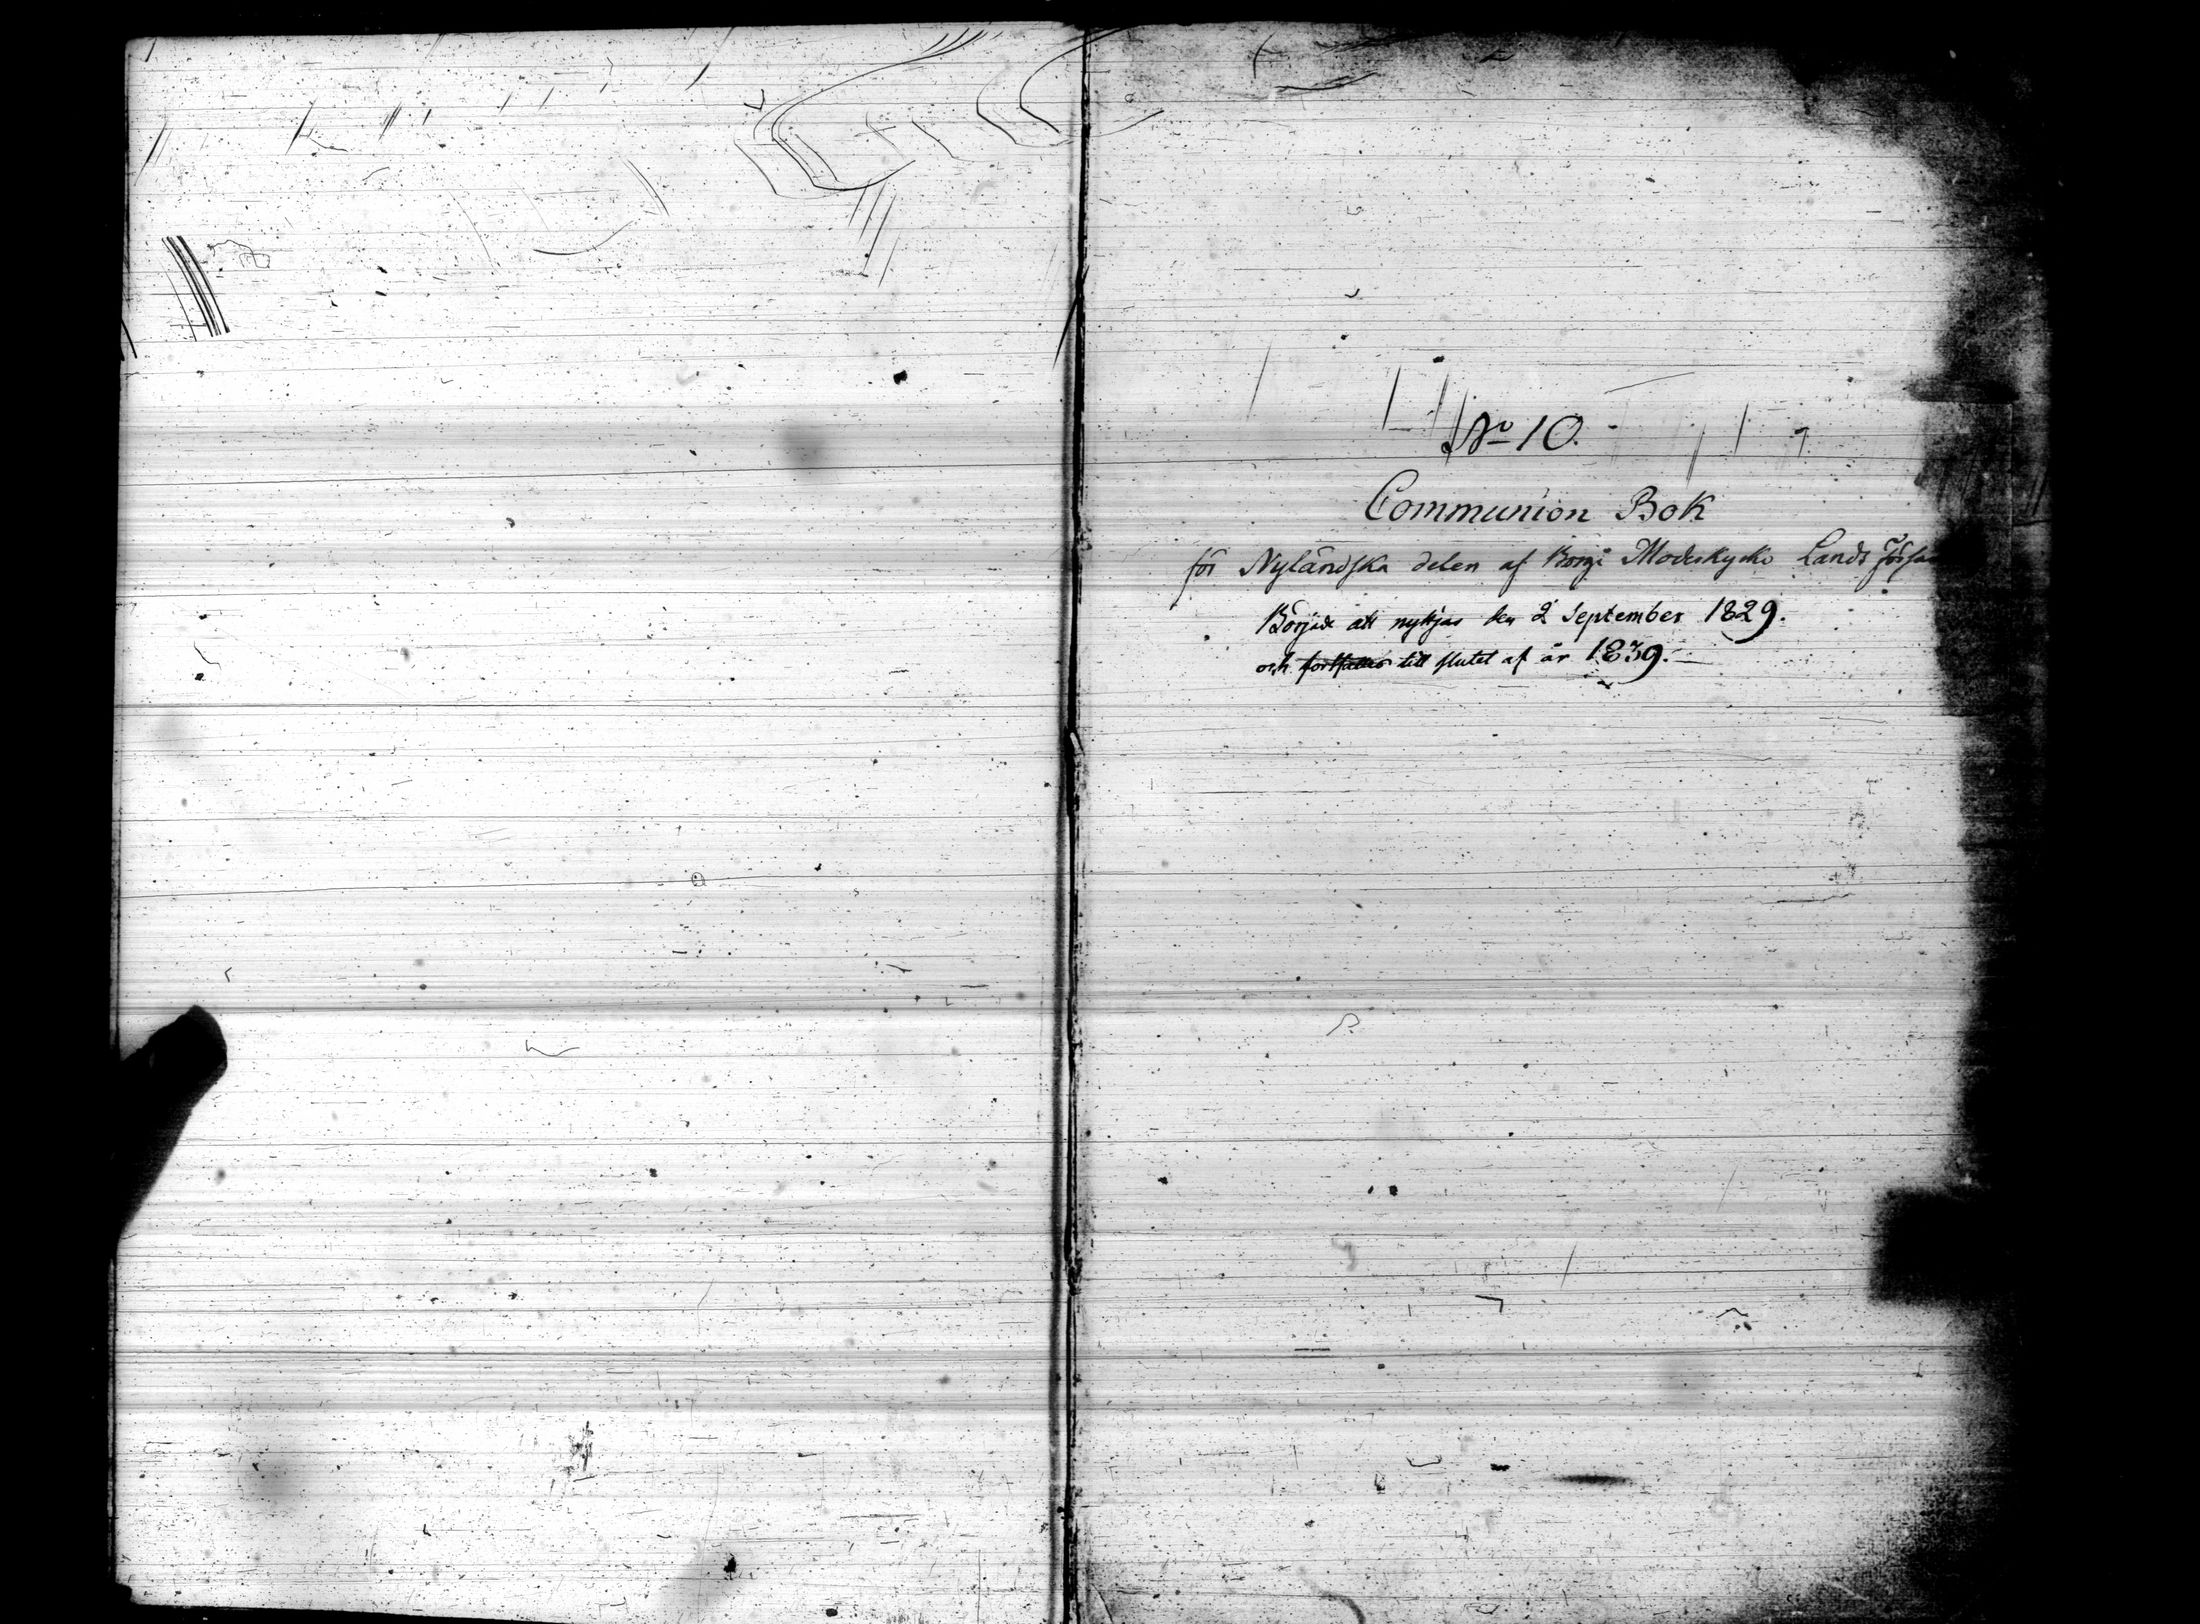 No 10.
Communion Bok
för Nyländska delen af Borgå Moderkyrko Lands Försam
Börjad att nyttjas den 2 September 1829.
och till slutet af år 1839.